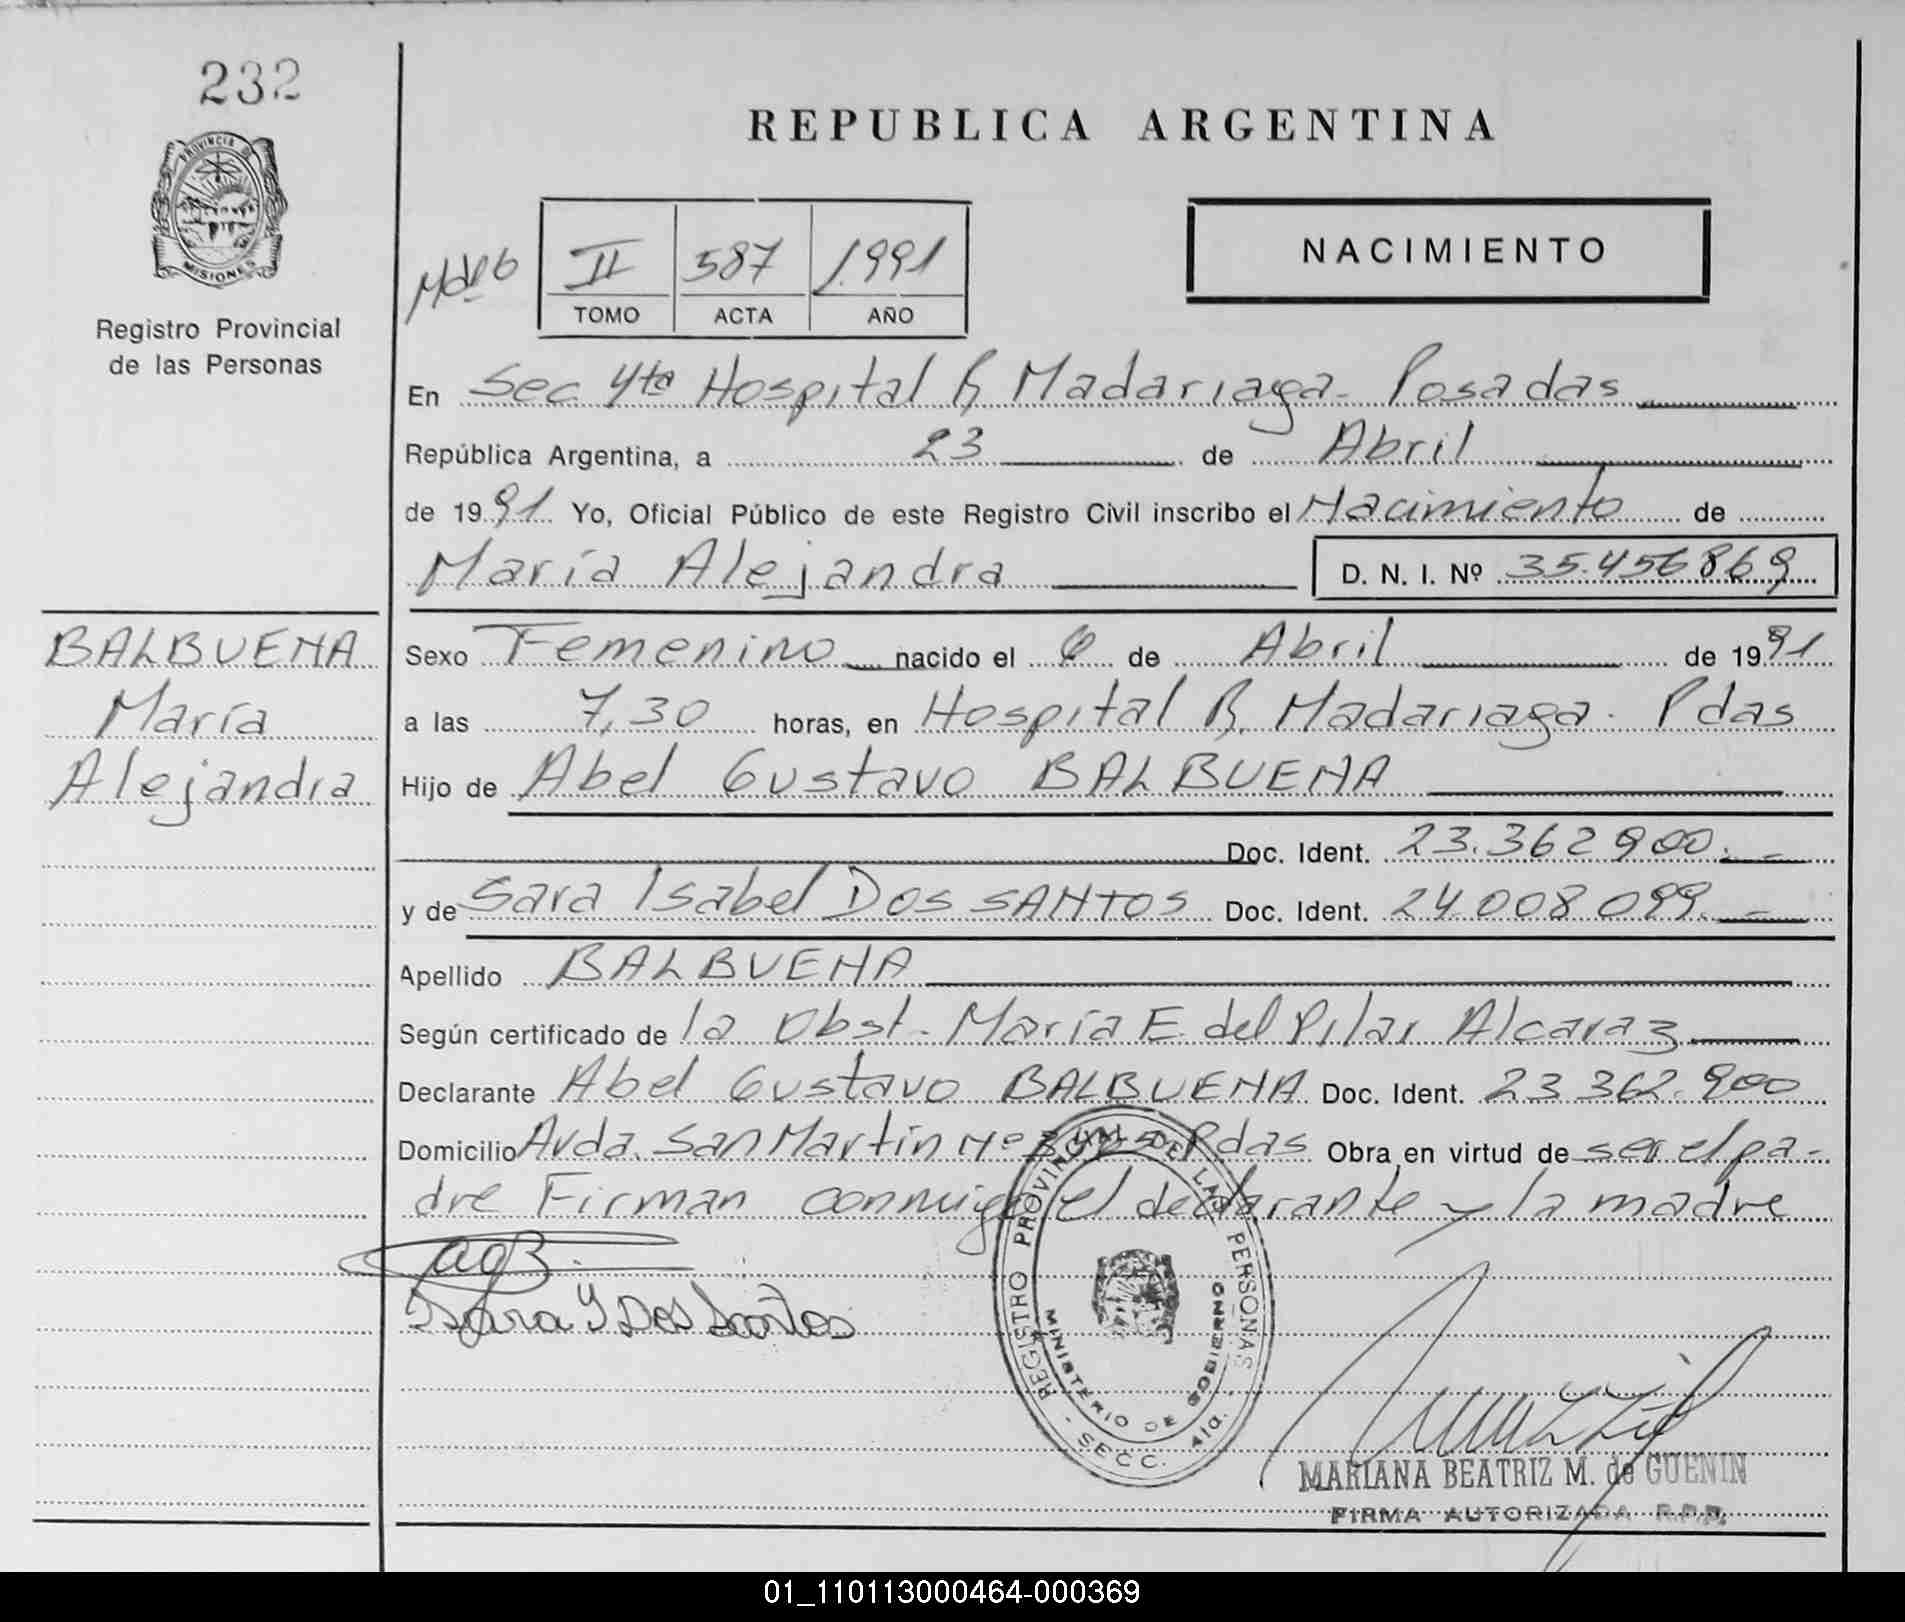 232
PROVINCIA D
MISIONES
Registro Provincial
de las Personas
REPUBLICA ARGENTINA
II 587 1.991
TOMO ACTA AÑO
NACIMIENTO
En Sec 4ta Hospital R, Madariaga - Posadas
República Argentina, a 23 de Abril
de 1991 Yo, Oficial Público de este Registro Civil inscribo el Nacimiento de
María Alejandra D. N. I. Nº 35.456869
BALBUENA
María
Alejandra
Sexo Femenino nacido el 6 de Abril de 1991
a las 7,30 horas, en Hospital R, Madariaga. Pdas
Hijo de Abel Gustavo BALBUENA
Doc. Ident. 23.362 900.-
y de Sara Isabel DOS SANTOS Doc. Ident. 24 008 099.-
Apellido BALBUENA
Según certificado de la Obst. María E. del Pilar Alcaraz
Declarante Abel Gustavo BALBUENA Doc. Ident. 23 362.900
Domicilio Avda. San Martín Nº Pdas Obra en virtud de ser el pa-
dre Firman conmigo el declarante y la madre
Sara Y Dos Santos
REGISTRO PROVINCIAL DE LAS PERSONAS
MINISTERIO DE GOBIERNO
- SECC. 4ta. -
MARIANA BEATRIZ M. de GUENIN
FIRMA AUTORIZADA R.P.P.
01_110113000464-000369